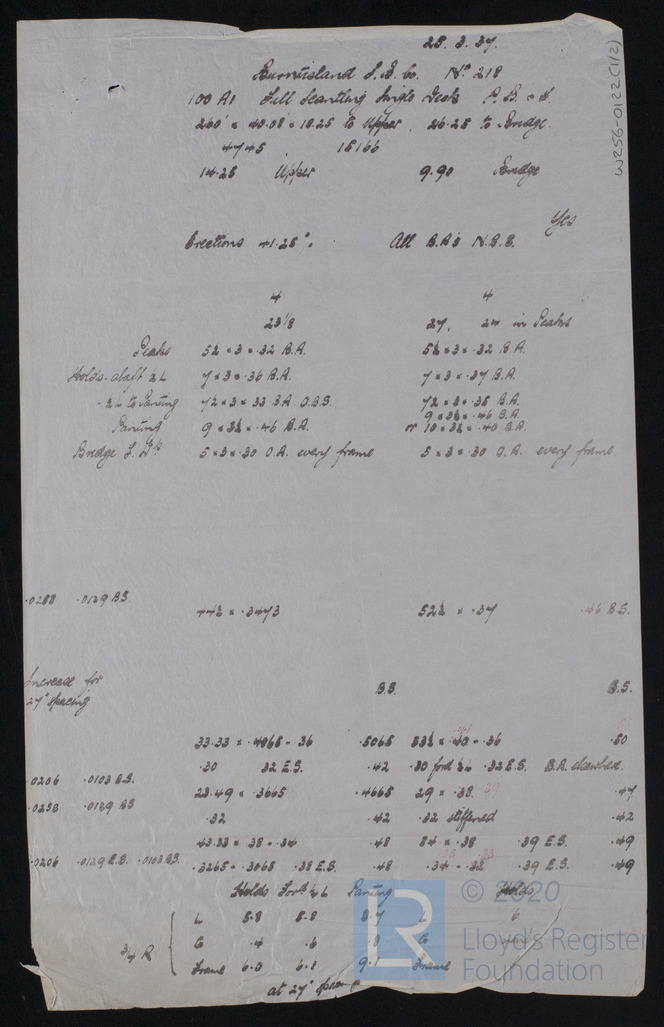 25.3.37.
W256-0122(1/2)
Burntisland S.B. Co. No 218
100 A1 Full Scantling Single Deck P.B. & F.
260' × 40.08 × 18.25 to Upper, 26.25 to Bridge.
4745, 15166
14.25 Upper 9.90 Bridge
Yes
Erections 41.25%. All B.A's N.B.B.
4 4
23 1/8 27, 24 in Peaks
Peaks 5½ × 3 × .32 B.A. 5½ × 3 × .32 B.A.
Holds abaft ¾ L 7 × 3 × .36 B.A. 7 × 3 × .37 B.A.
" ¾ L to Panting 7½ × 3 × 33 B.A. O.B.S. 7½ × 3 × .35 B.A.
9 × 3½ × .46 B.A.
Panting 9 × 3½ × .46 B.A. or 10 × 3½ × .40 B.A.
Bridge 5 × 3 × .30 O.A. every frame 5 × 3 × .30 O.A. every frame
.0258 .0129 B.S.
44½ × .3473 52½ × .37 .46 B.S.
Increase for
27" spacing
B.S. B.S.
33.33 × .4065 - .36 .5065 33½ × .40 - .36 .50
.30 32 E.S. .42 .30 ford ¾ L .32 E.S. B.A. elsewhere.
.0206 .0103 B.S. 23.49 × .3665 .4665 29 × .38 .39 .47
.0258 .0129 BS .32 .42 .32 stiffened .42
43.33 × 38 - .34 .48 84 × .38 .39 E.S. .49
.0206 .0129 E.S. .0103 B.S. .3265 - .3065 .38 E.S. .48 .34 - .32 .39 E.S. .49
Holds For'd ¾ L Panting Holds
L 5.8 5.8 8.7 L 6
¾ R G .4 .6 G
Frame 6.0 6.1 9.1 Frame
at 27" spacing
© 2020
LR
Lloyd's Register
Foundation